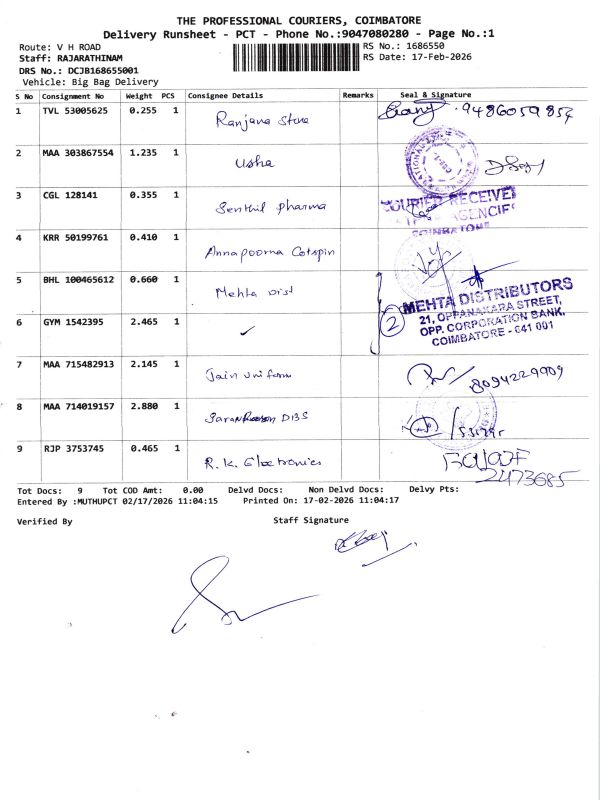 THE PROFESSIONAL COURIERS, COIMBATORE
Delivery Runsheet - PCT - Phone No.:9047080280 - Page No.:1
Route: V H ROAD
RS No.: 1686550
Staff: RAJARATHINAM
RS Date: 17-Feb-2026
DRS No.: DCJB168655001
Vehicle: Big Bag Delivery
S No Consignment No Weight PCS Consignee Details Remarks Seal & Signature
1 TVL 53005625 0.255 1 Ranjana Store 9486059854
2 MAA 303867554 1.235 1 Usha
3 CGL 128141 0.355 1 Senthil pharma
COURIER RECEIVED
AGENCIES
COIMBATORE
4 KRR 50199761 0.410 1 Annapoorna Cotspin
5 BHL 100465612 0.660 1 Mehta Dist
MEHTA DISTRIBUTORS
21, OPPANAKARA STREET,
OPP. CORPORATION BANK,
COIMBATORE - 641 001
6 GYM 1542395 2.465 1 ✓ 2
7 MAA 715482913 2.145 1 Jain uniform 8094229909
8 MAA 714019157 2.880 1
9 RJP 3753745 0.465 1 R.K. Electronics
2473685
Tot Docs: 9 Tot COD Amt: 0.00 Delvd Docs: Non Delvd Docs: Delvy Pts:
Entered By :MUTHUPCT 02/17/2026 11:04:15 Printed On: 17-02-2026 11:04:17
Verified By Staff Signature